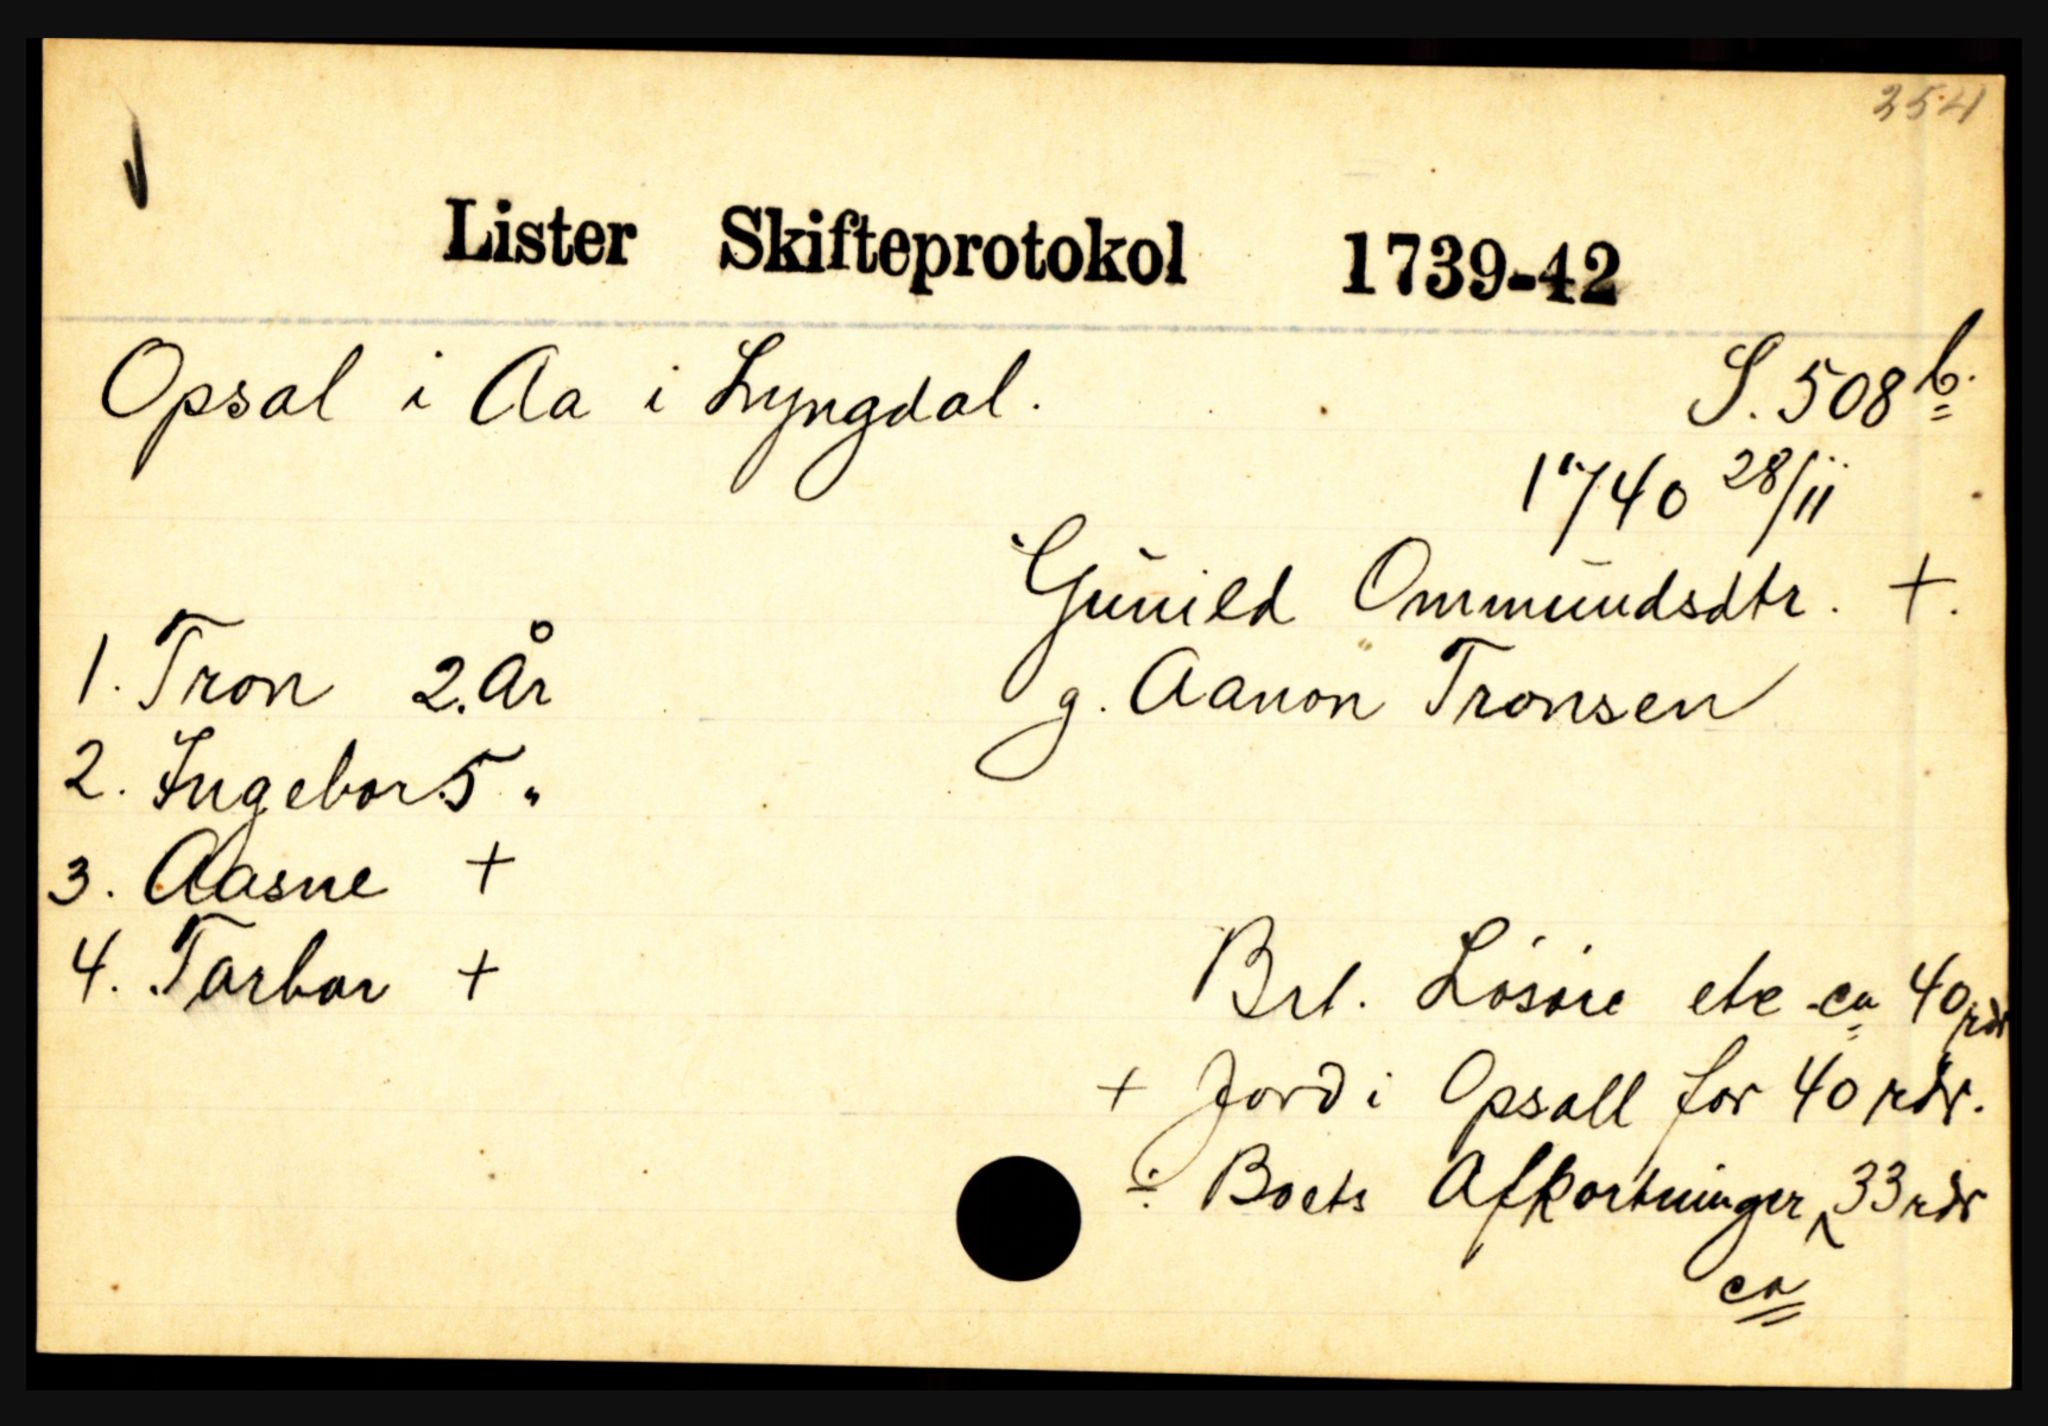 254
Lister Skifteprotokol 1739-42
Opsal i Aa i Lyngdal. S. 508 b.
1740 28/11
Gunild Ommundsdtr. +.
1. Tron 2. År g. Aanon Tronsen
2. Ingebor 5 "
3. Aasne +
4. Tarbor +
Brt. Løsøre etc ca 40 rdr
+ Jord i Opsall for 40 rdr.
÷ Boets Afkortninger 33 rdr
ca